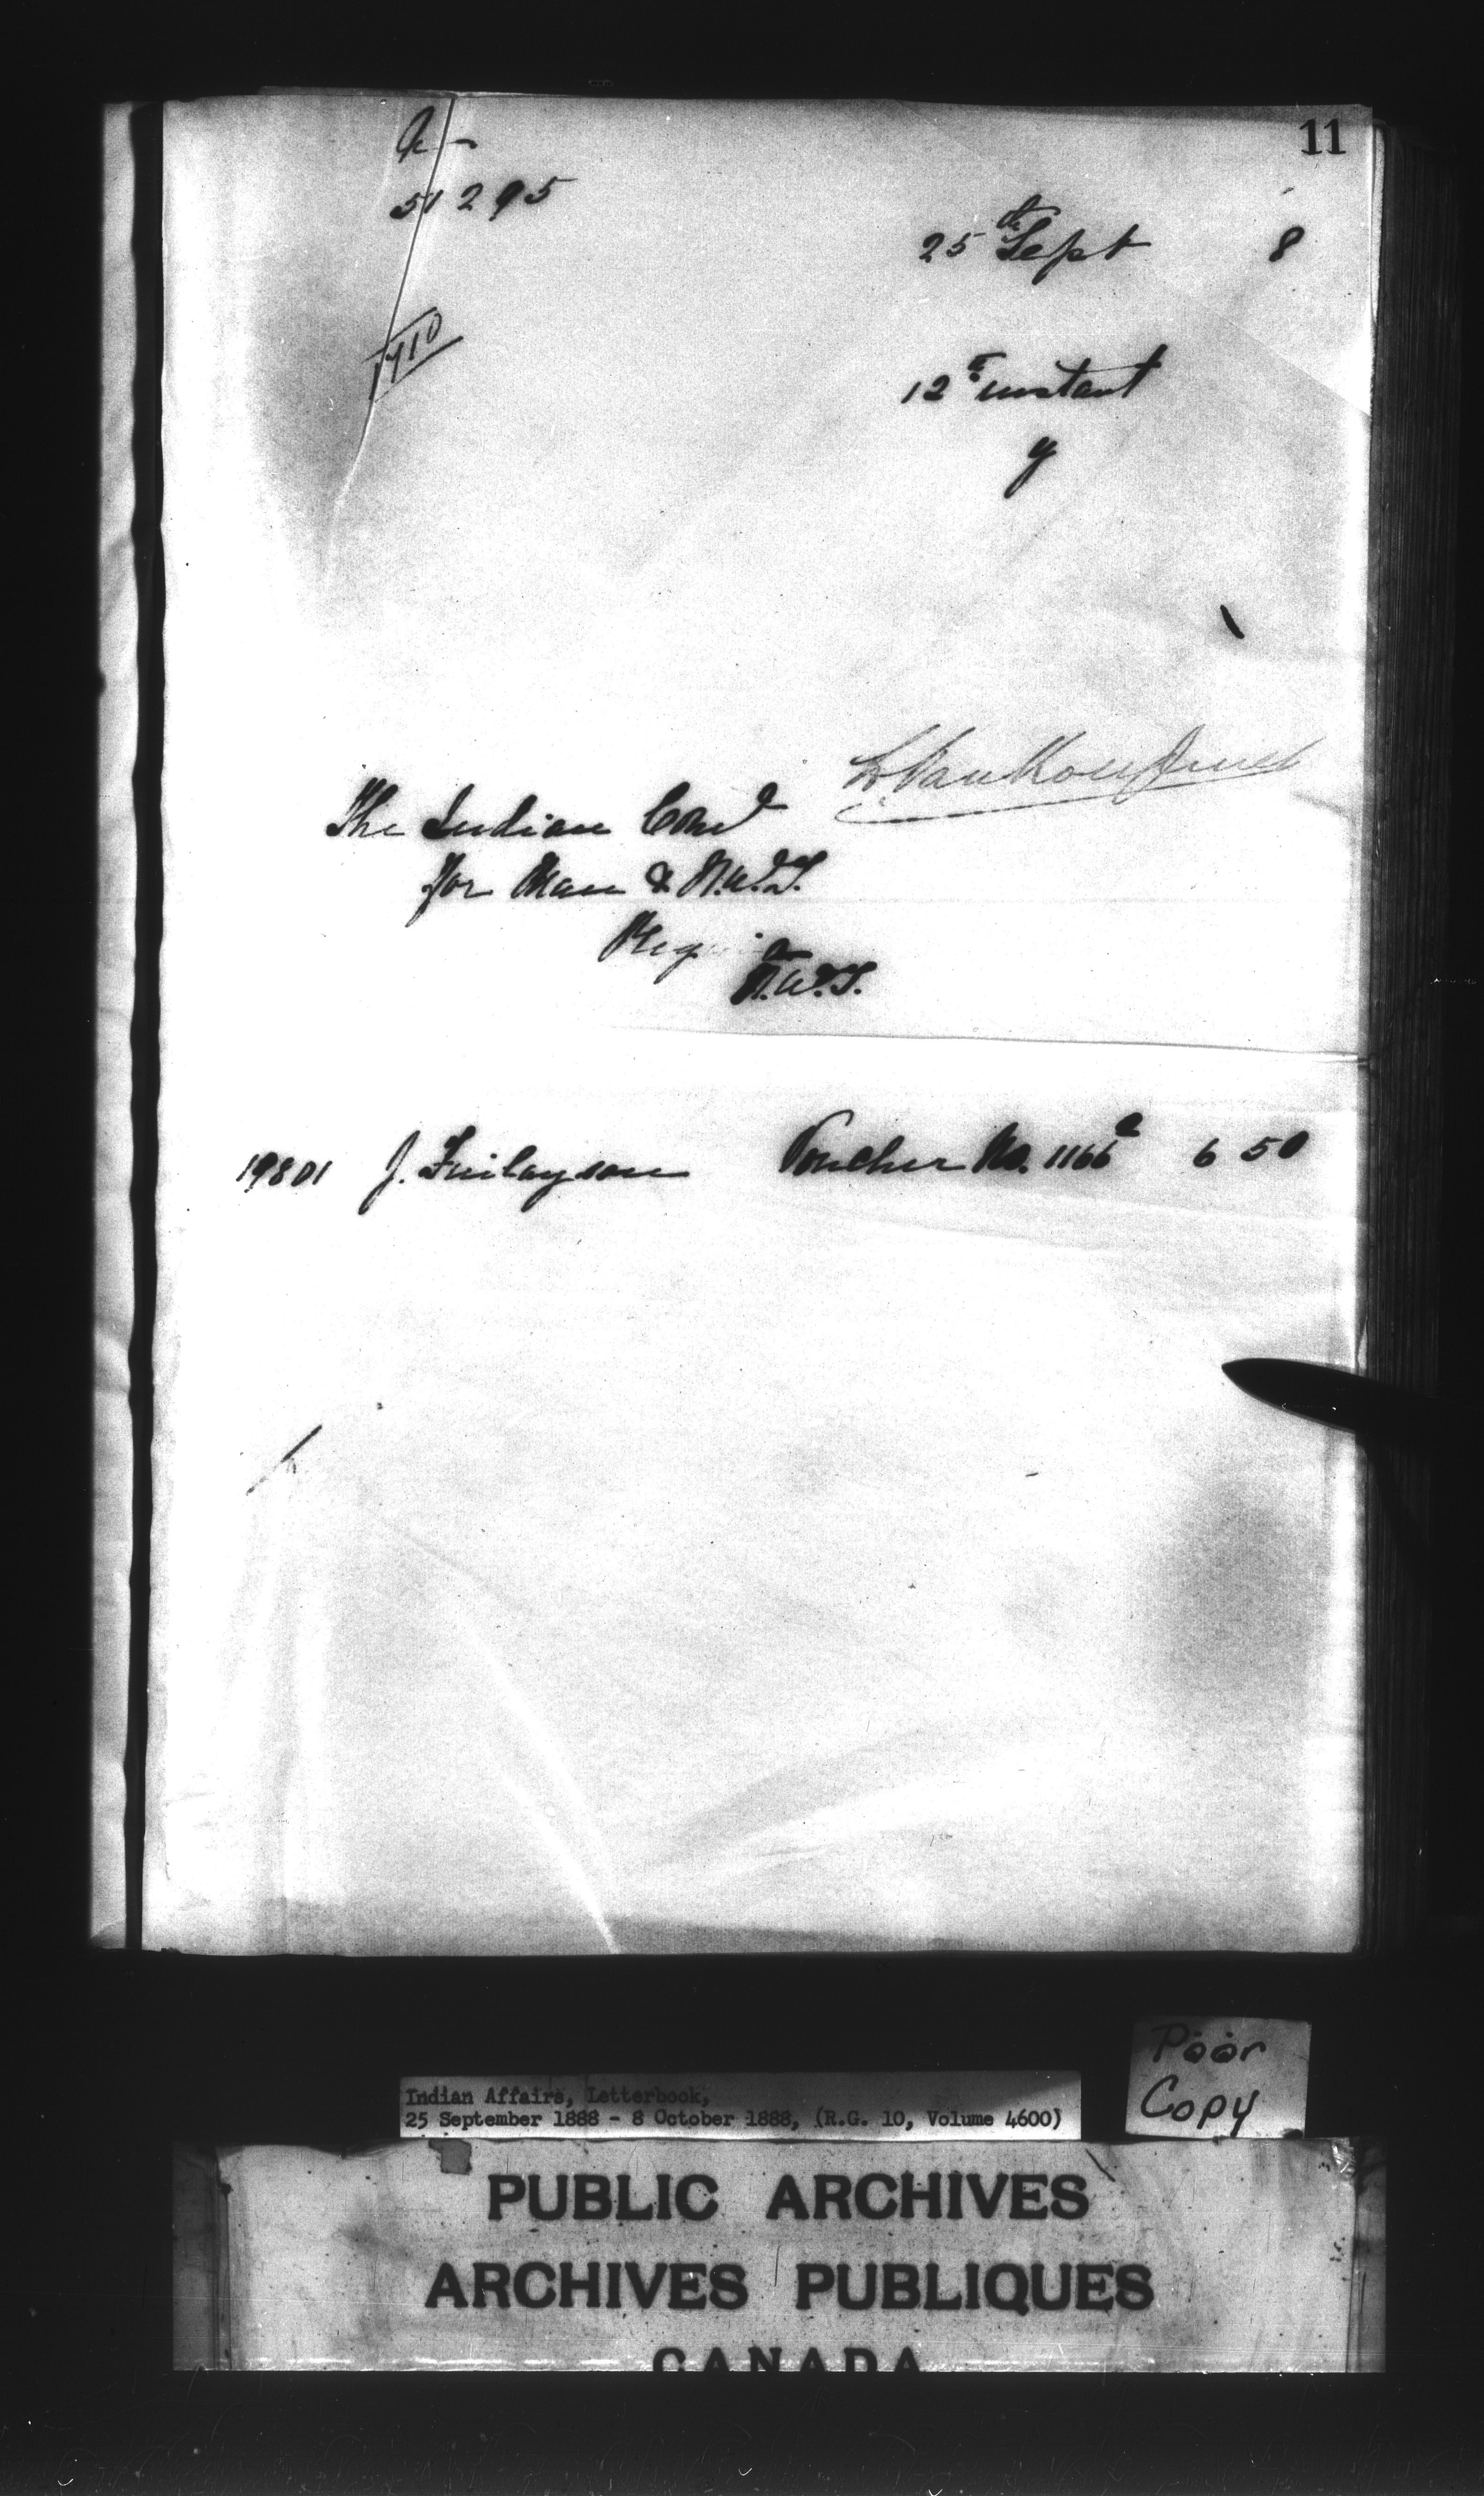 11
51295
25th Sept 8
1710
12th instant
y
L. Vankoughnet
The Indian Comr
for Man & N.W.T.
Regina
N.W.T.
19801 J. Finlayson Voucher No. 1166 2 6 50
Poor
Copy
Indian Affairs, Letterbook,
25 September 1888 - 8 October 1888, (R.G. 10, Volume 4600)
PUBLIC ARCHIVES
ARCHIVES PUBLIQUES
CANADA